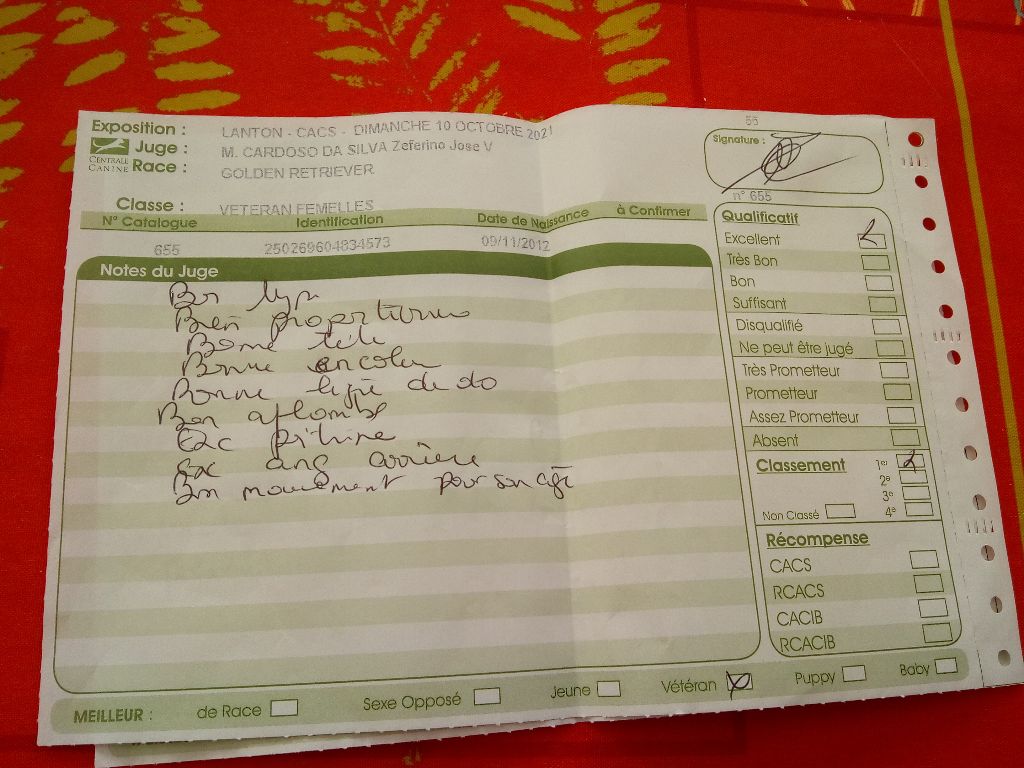 Exposition : LANTON - CACS - DIMANCHE 10 OCTOBRE 2021
Juge : M. CARDOSO DA SILVA Zeferino Jose V
CENTRALE CANINE
Race : GOLDEN RETRIEVER
Classe : VETERAN FEMELLES
N° Catalogue Identification Date de Naissance à Confirmer
655 250269604834573 09/11/2012
Notes du Juge
Bon type
Bien proportionné
Bonne tête
Bonne encolure
Bonne ligne de do
Bon aplombs
Exc poitrine
Exc ang arrière
Bon mouvement pour son age
55
Signature :
n° 655
Qualificatif
Excellent
Très Bon
Bon
Suffisant
Disqualifié
Ne peut être jugé
Très Prometteur
Prometteur
Assez Prometteur
Absent
Classement 1er
2e
3e
Non Classé 4e
Récompense
CACS
RCACS
CACIB
RCACIB
MEILLEUR : de Race Sexe Opposé Jeune Vétéran Puppy Baby